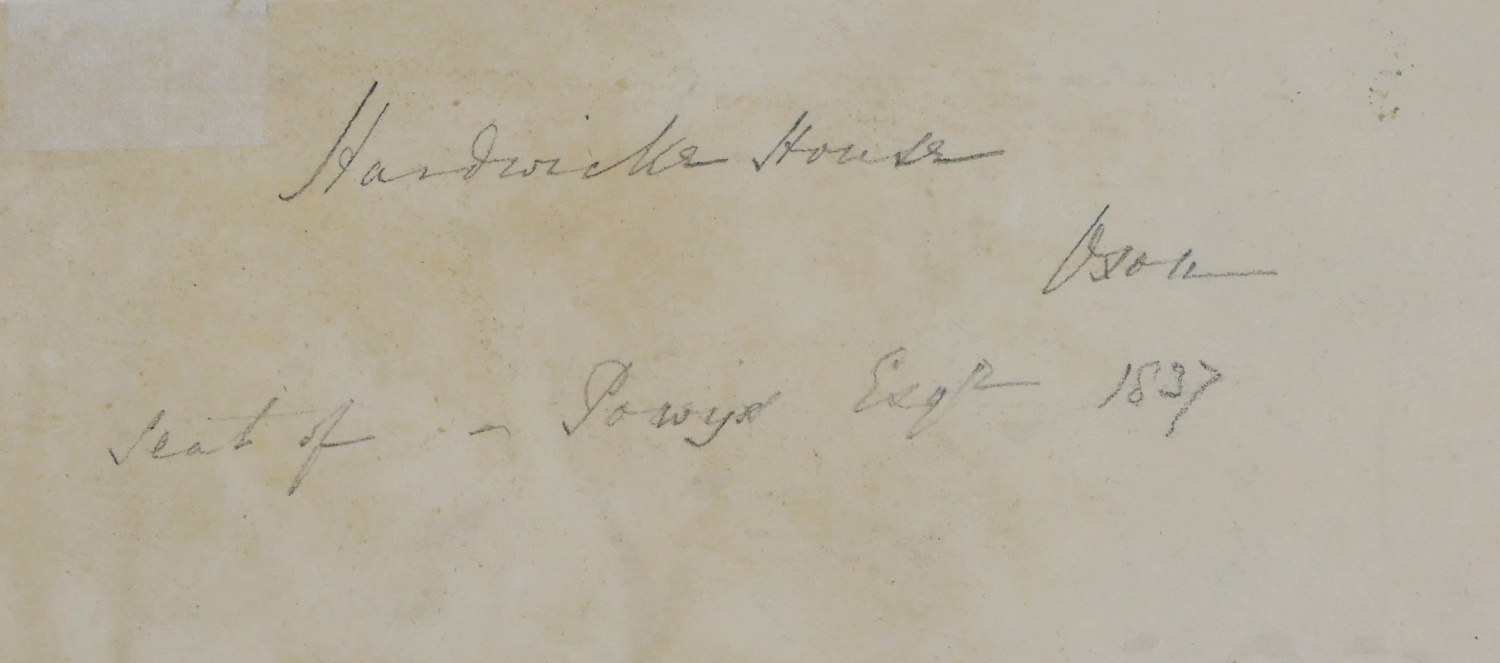 Hardwicke House
Oxon
Seat of - Powys Esqr 1837